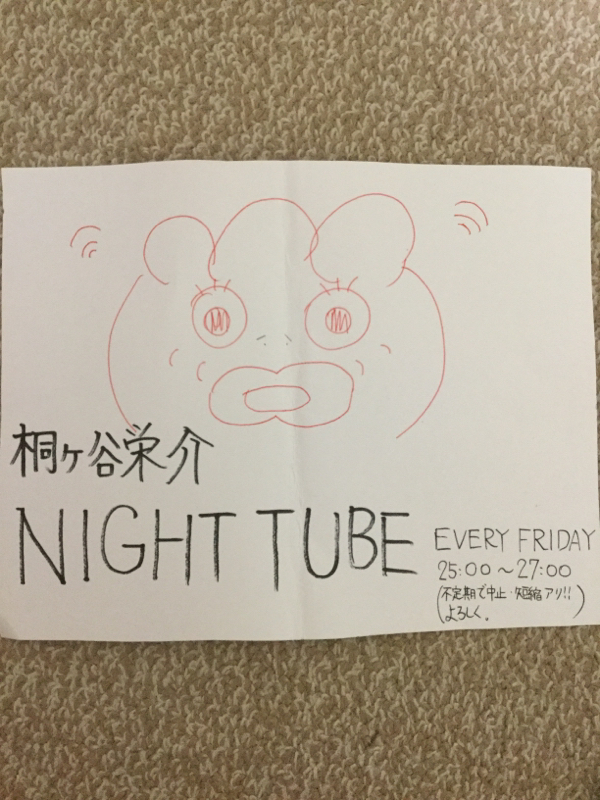 桐ヶ谷栄介
NIGHT TUBE
EVERY FRIDAY
25:00〜27:00
(不定期で中止・短縮アリ!!
よろしく。)